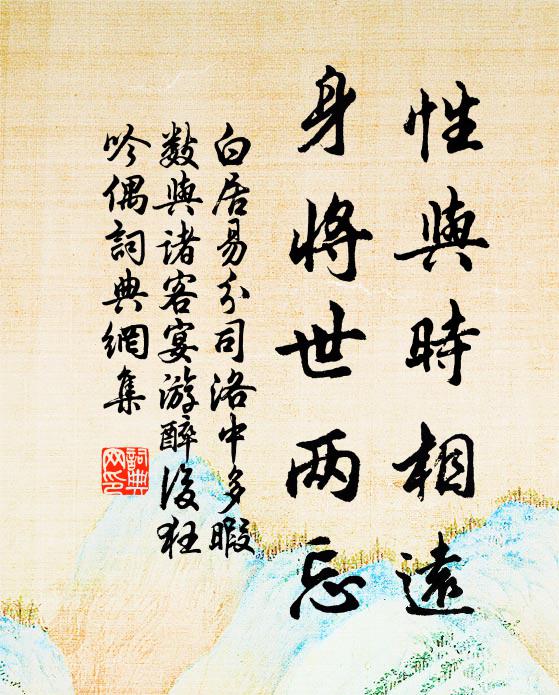 性與時相遠
身將世两忘
白居易分司洛中多暇
數與诸客宴游醉後狂
吟偶詞典網集
詞典网印